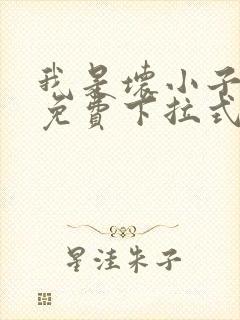 我是壞小子
免費下拉式
星洼朱子